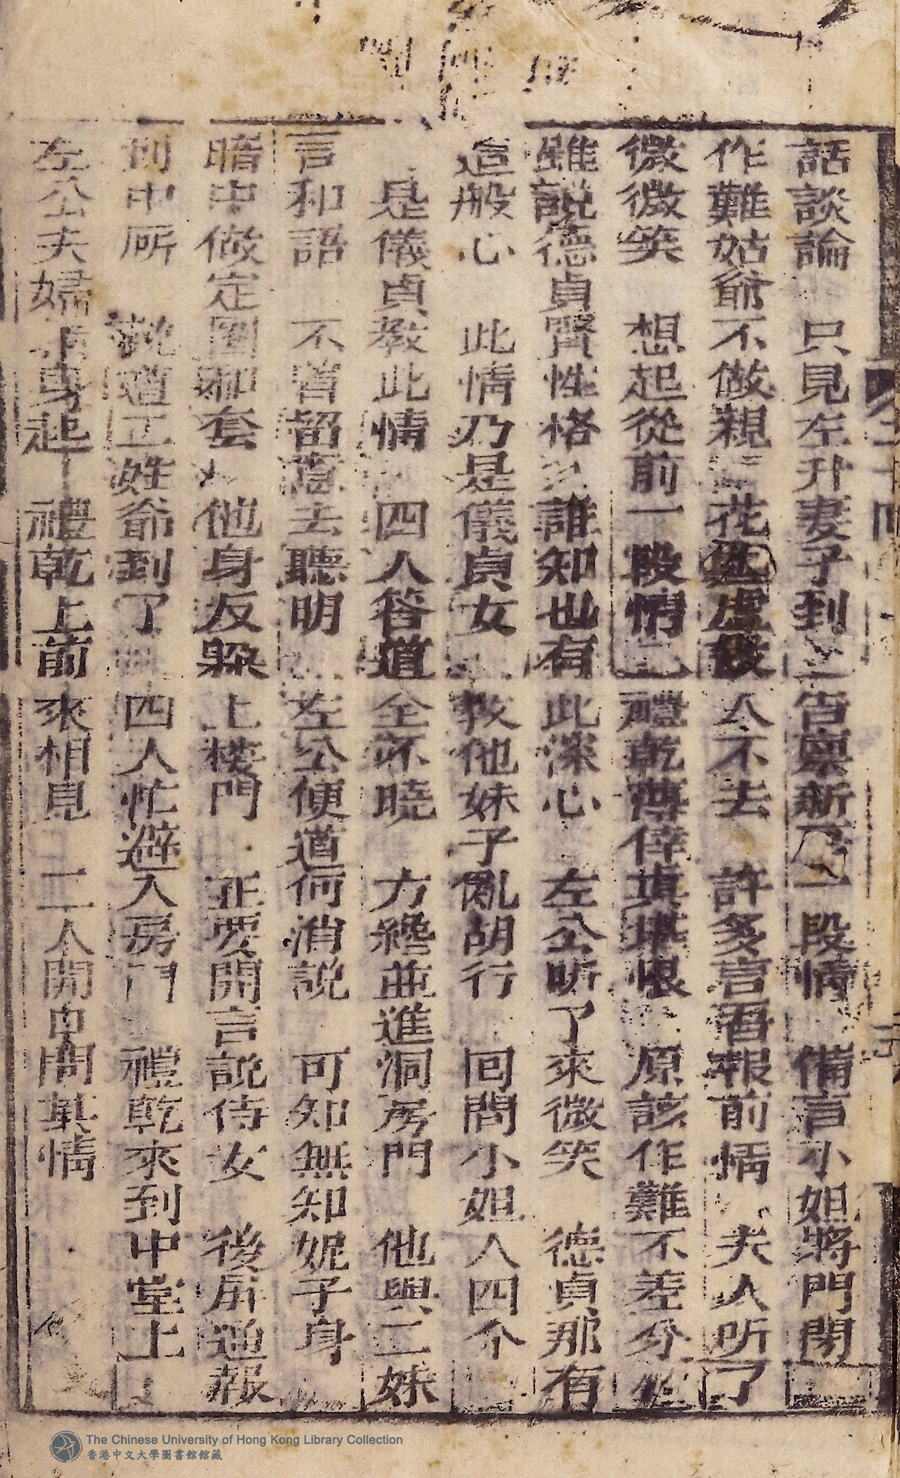 話談論 只見左升妻子到 告禀新 一段情 備言小姐將門閉
作難姑爺不做親 花 虛設 人不去 許多言語報前情 夫人听了
微微笑 想起從前一段情 禮乾薄倖真堪恨 原該作難不差分
雖説德貞賢性格 誰知也有此深心 左公听了來微笑 德貞那有
這般心 此情乃是儀貞女 教他妹子亂胡行 回問小姐人四个
是儀貞教此情 四人答道全不曉 方纔並進洞房門 他與二妹
言和語 不曾留意去聽明 左公便道何消説 可知無知妮子身
暗中做定圈和套 他身反躲上樓門 正要開言説侍女 後屏通報
到中所 説道 姓爺到了 四人忙避入房門 禮乾來到中堂上
左公夫婦 身起 禮乾上前來相見 二人開口問其情
The Chinese University of Hong Kong Library Collection
香港中文大學圖書館館藏